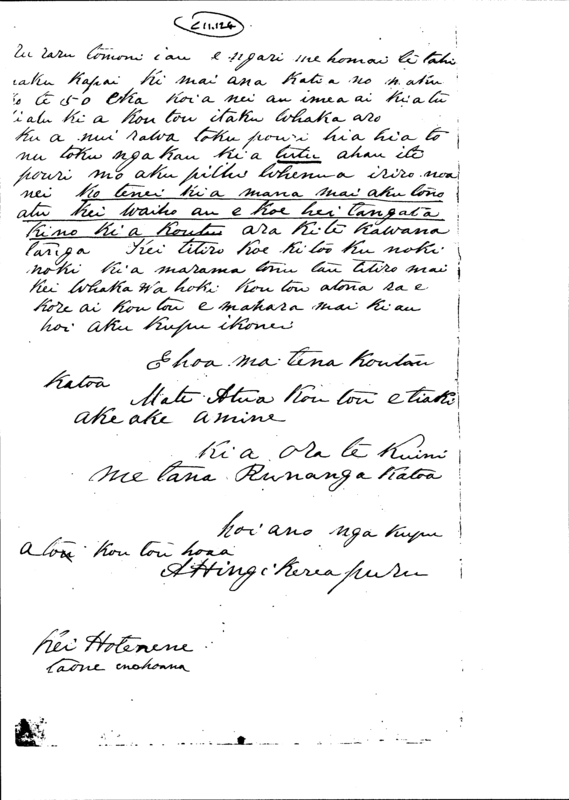 C11.124
raru tonu i au e ngari me homai te tahi
naku kapai ki mai ana katia no n. aku
o te 50 eka koia nei au imea ai kiatu
iatu ki a kou tou itaku whaka aro
ku a nui rawa toku pouri hia hia to
nu toku ngakau kia tutu ahau ite
pouri mo aku pihi whenua iriro noa
nei ko tenei kia mana mai aku tono
atu kei waiho au e koe hei tangata
kino ki a koutou ara ki te kawana
tanga Kei titiro koe ki toku noki
noki kia marama tonu tau titiro mai
kei whaka wa hoki kou tou atona ra e
kore ai kou tou e mahara mai ki au
hoi aku kupu ikonei
E hoa ma tena koutou
Katoa
Mate Atua kou tou e tiaki
ake ake amine
ki a ora te Kuini
me tana Runanga Katoa
hoi ano nga kupu
a tou kou tou hoaa
A Hingikereapuru
Kei Hotenene
taone